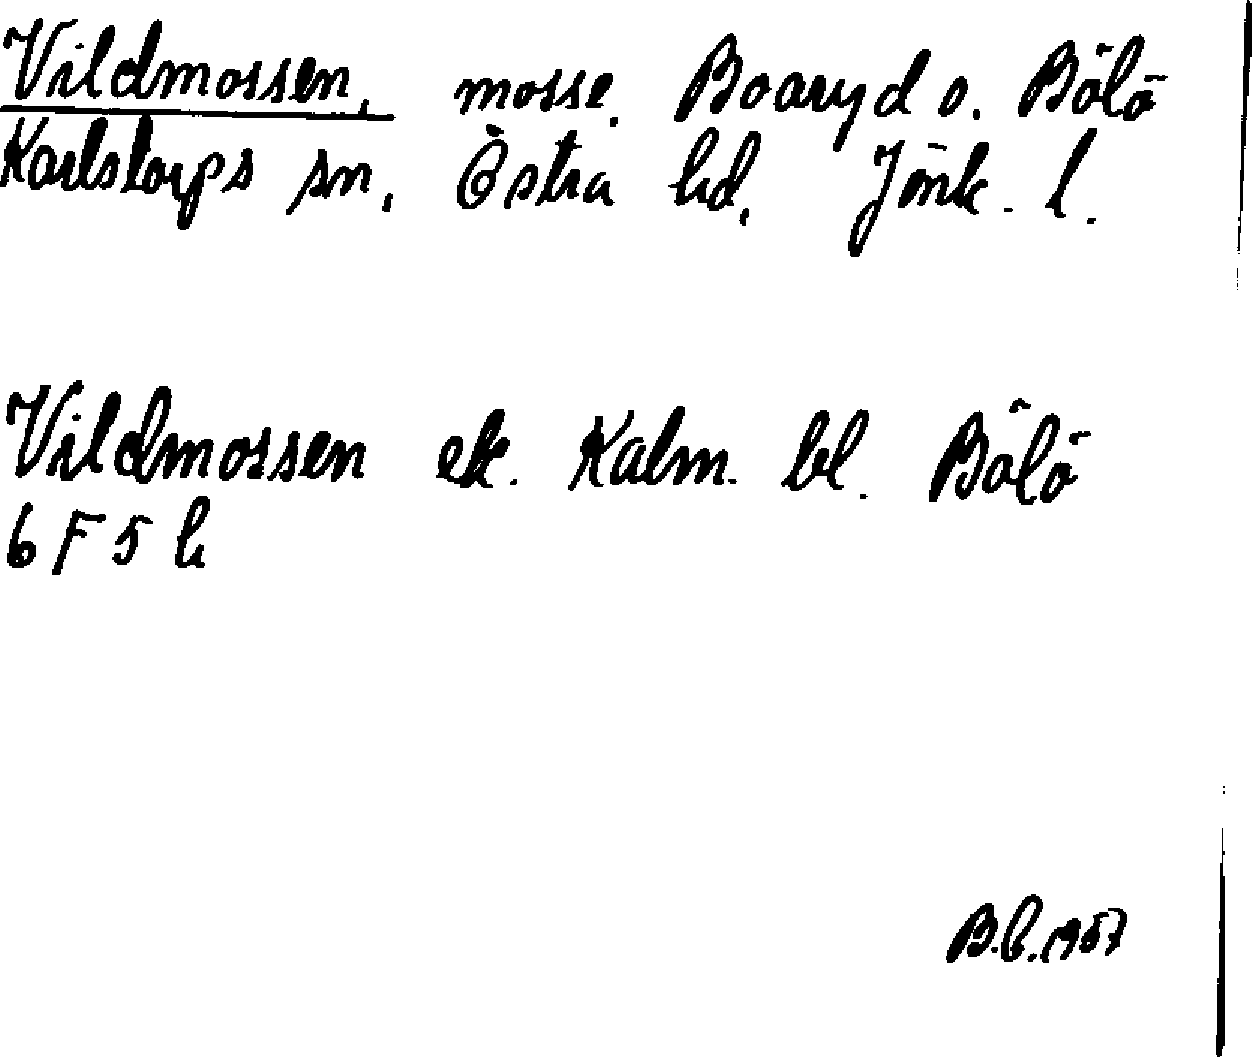 Vildmossen, mosse. Boaryd o. Bölö
Karlstorps sn, Östra hd, Jönk. l.
Vildmossen ek. Kalm. bl. Bölö
6 F 5 h
B.C. 1957